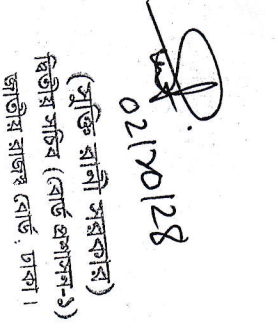 ০২/১০/২৪
(সুক্তি রানী সরকার)
দ্বিতীয় সচিব (বোর্ড প্রশাসন-১)
জাতীয় রাজস্ব বোর্ড, ঢাকা।